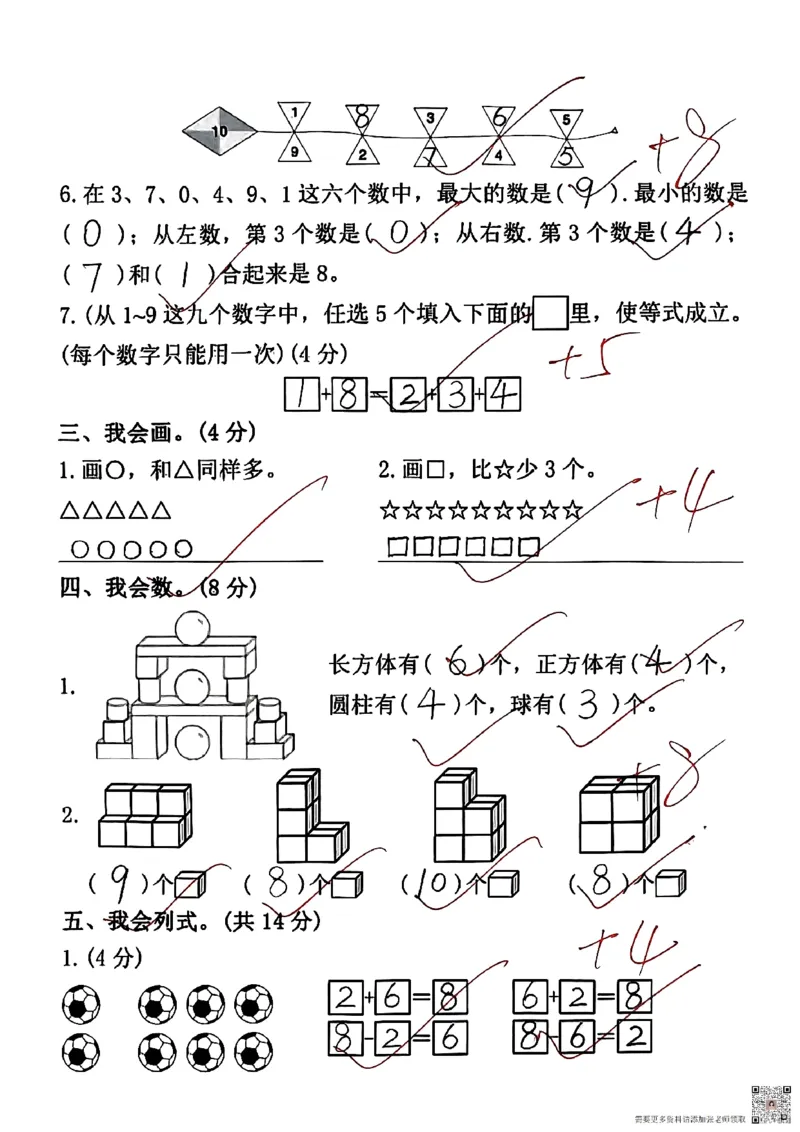 1 8 3 6 5
10
9 2 7 4 5
+8
6.在3、7、0、4、9、1这六个数中，最大的数是(9).最小的数是
(0)；从左数，第3个数是(0)；从右数.第3个数是(4)；
(7)和(1)合起来是8。
7.(从1~9这九个数字中，任选5个填入下面的□里，使等式成立。
(每个数字只能用一次)(4分)
+5
1+8=2+3+4
三、我会画。(4分)
1.画○，和△同样多。 2.画□，比☆少3个。
△△△△△ ☆☆☆☆☆☆☆☆☆
+4
○○○○○ □□□□□□
四、我会数。(8分)
1.
长方体有(6)个，正方体有(4)个，
圆柱有(4)个，球有(3)个。
+8
2.
(9)个 (8)个 (10)个 (8)个
五、我会列式。(共14分)
+4
1.(4分)
2+6=8 6+2=8
8-2=6 8-6=2
需要更多资料请添加张老师领取